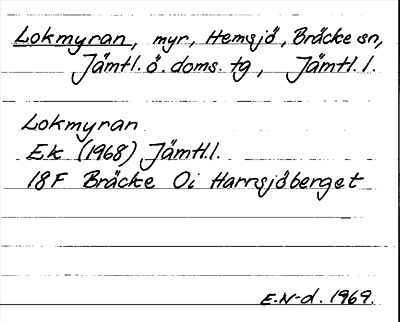 Lokmyran, myr, Hemsjö, Bräcke sn,
Jämtl. ö. doms. tg, Jämtl. l.
Lokmyran
Ek (1968) Jämtl.l.
18F Bräcke Oi Harrsjöberget
E.N-d. 1969.